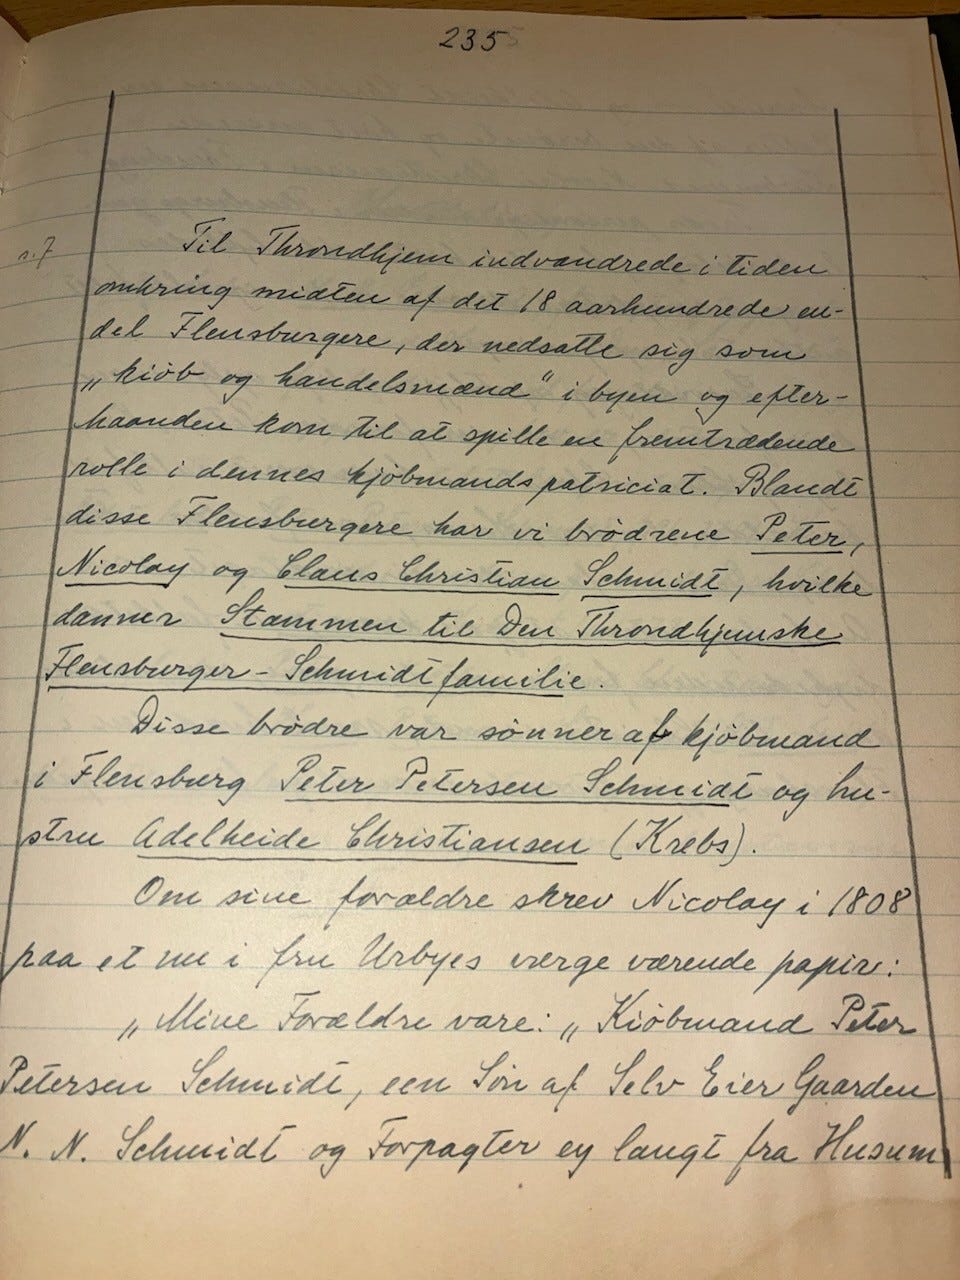 235
s. 7
Til Throndhjem indvandrede i tiden
omkring midten af det 18 aarhundrede en-
del Flensburgere, der nedsatte sig som
„kiöb og handelsmænd" i byen og efter-
haanden kom til at spille en fremtrædende
rolle i dennes kjöbmandspatriciat. Blandt
disse Flensburgere har vi brödrene Peter,
Nicolay og Claus Christian Schmidt, hvilke
danner Stammen til Den Throndhjemske
Flensburger-Schmidtfamilie.
Disse brödre var sönner af kjöbmand
i Flensburg Peter Petersen Schmidt og hu-
stru Adelheide Christiansen (Krebs).
Om sine forældre skrev Nicolay i 1808
paa et nu i fru Urbyes værge værende papir:
„Mine Forældre vare: „Kiöbmand Peter
Petersen Schmidt, een Sön af Selv Eier Gaarden
N. N. Schmidt og Forpagter ey langt fra Husum